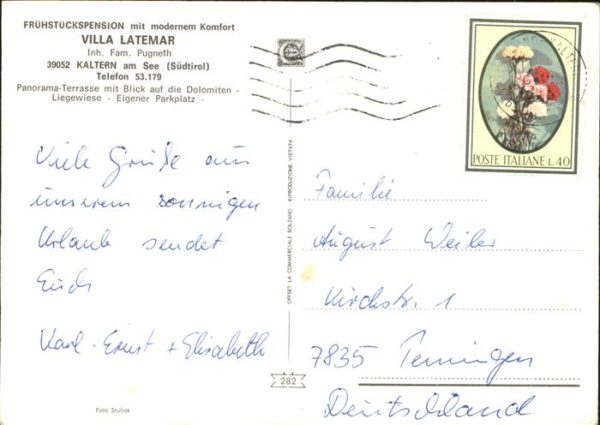 FRÜHSTÜCKSPENSION mit modernem Komfort
VILLA LATEMAR
Inh. Fam. Pugneth
39052 KALTERN am See (Südtirol)
Telefon 53.179
Panorama-Terrasse mit Blick auf die Dolomiten -
Liegewiese - Eigener Parkplatz -
Viele Grüße aus
unserem sonnigen
Urlaub sendet
Euch
Karl-Ernst + Elisabeth
Foto Studios
OFFSET LA COMMERCIALE BOLZANO - RIPRODUZIONE VIETATA
282
POSTE ITALIANE L.40
Familie
August Weiler
Kirchstr. 1
7835 Teningen
Deutschland